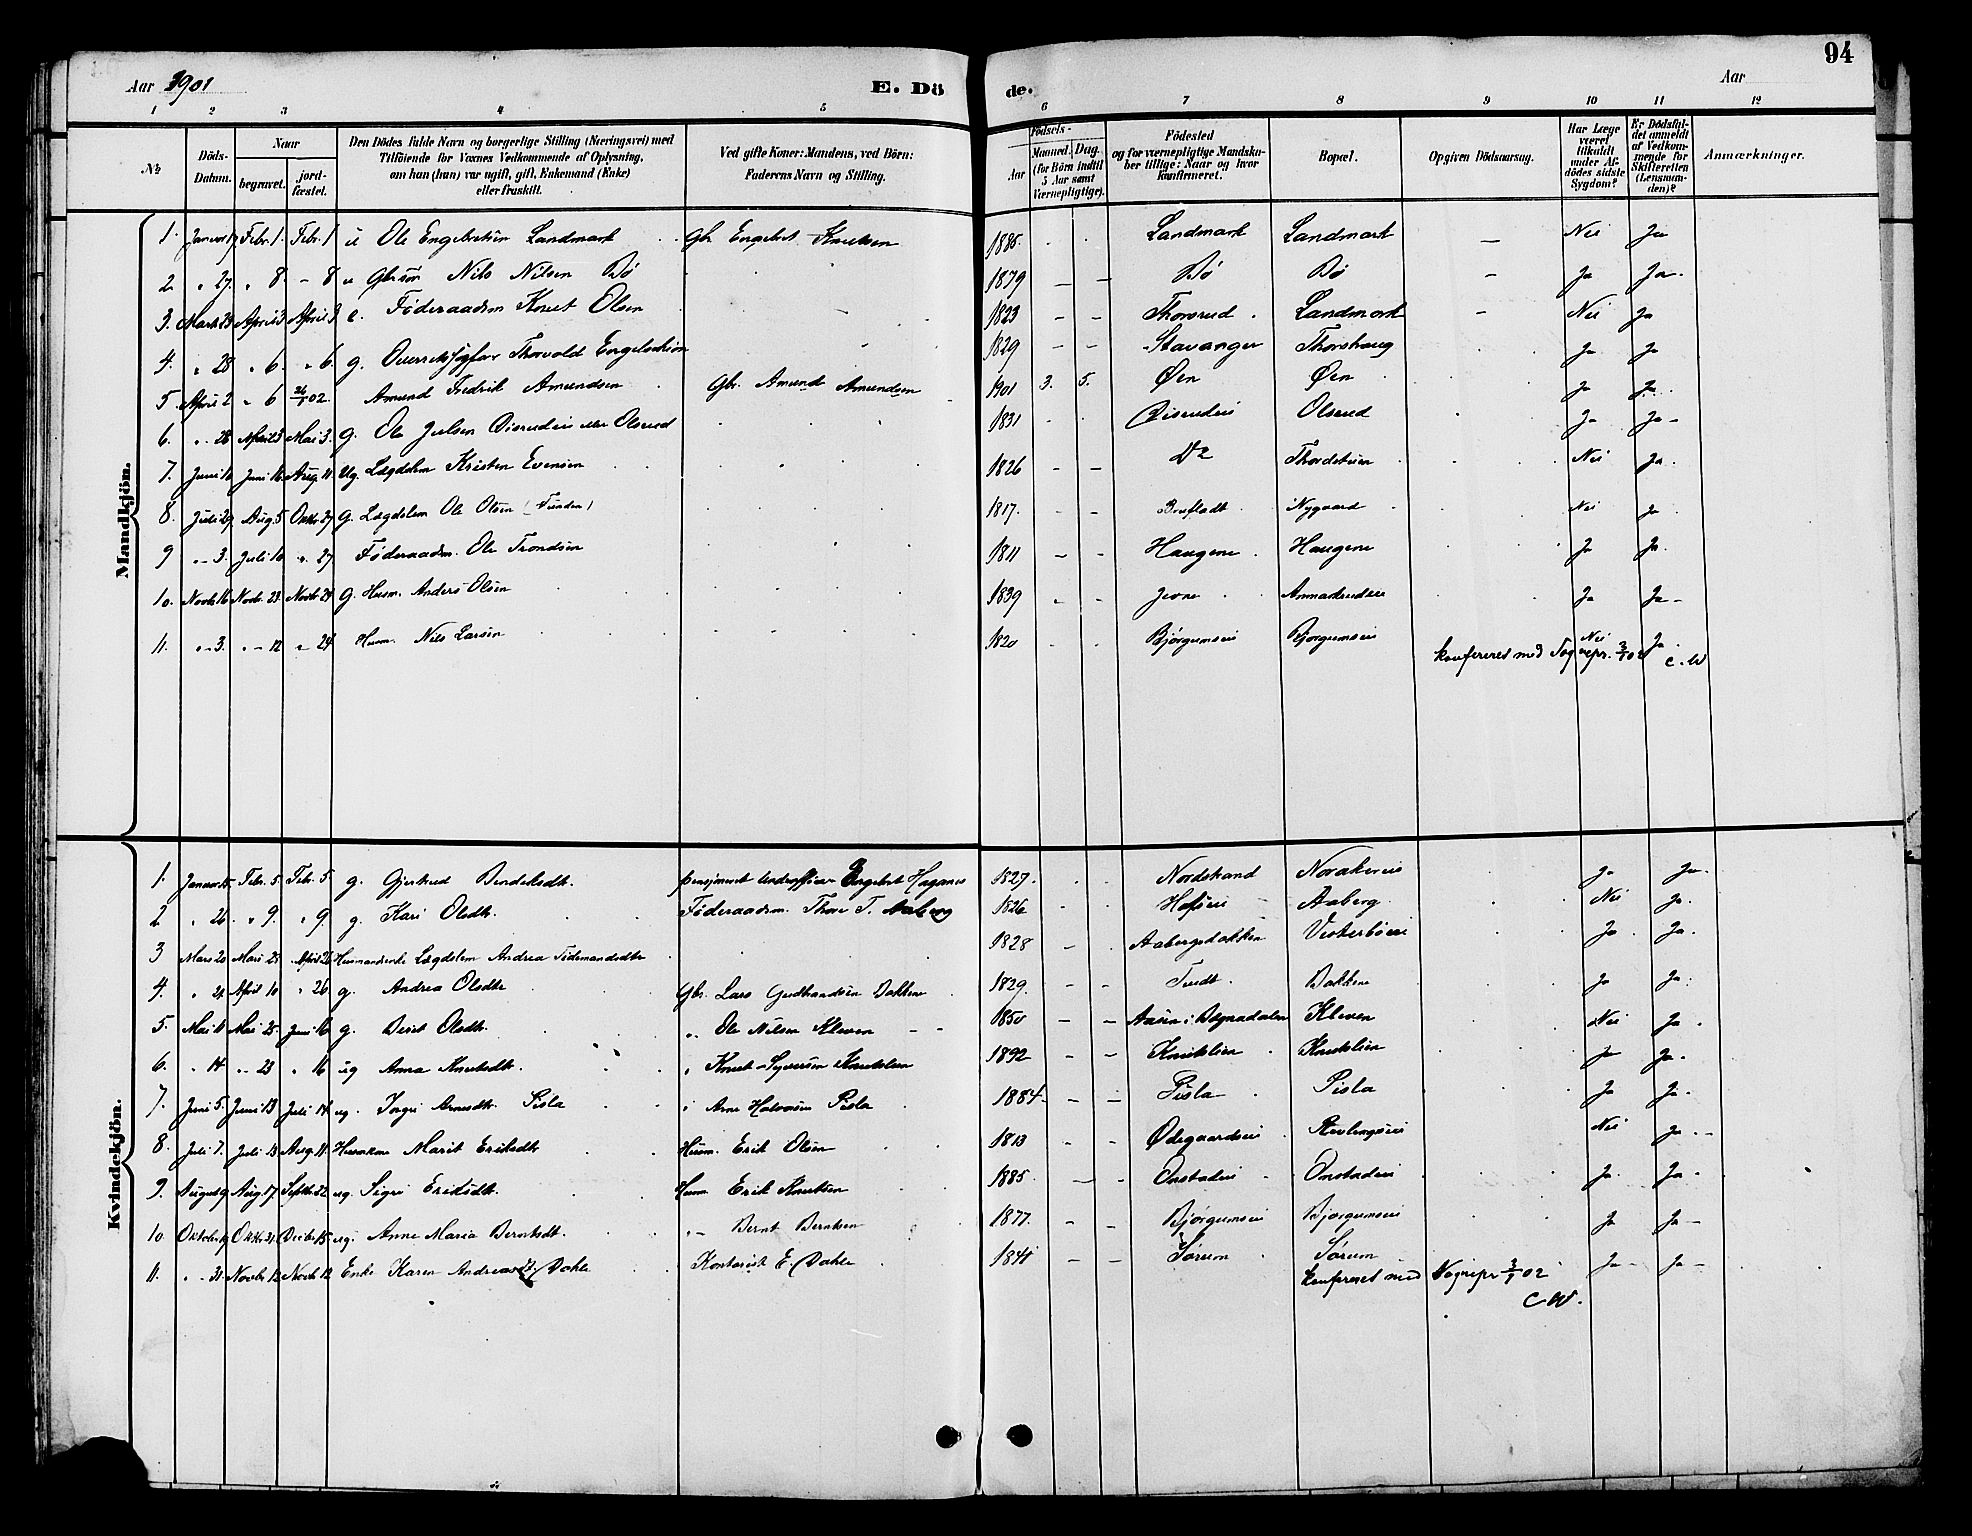 94
Aar 1901 E. Dö de. Aar
1 2 3 4 5 6 7 8 9 10 11 12
No. Döds-Datum. Naar begravet. jordfæstet. Den Dödes fulde Navn og borgerlige Stilling (Næringsvei) med Tilföiende for Voxnes Vedkommende af Oplysning, om han (hun) var ugift, gift, Enkemand (Enke) eller fraskilt. Ved gifte Koner: Mandens, ved Börn: Faderens Navn og Stilling. Födsels- Aar Maaned. Dag. (for Börn indtil 5 Aar samt Værnepligtige). Födested og for værnepligtige Mandskaber tillige: Naar og hvor konfirmeret. Bopæl. Opgiven Dödsaarsag. Har Læge været tilkaldt under Afdödes sidste Sygdom? Er Dödsfaldet anmeldt af Vedkommende for Skifteretten (Lensmanden)? Anmærkninger.
Mandkjön.
1. Januar Febr. 1. Febr. 1 u Ole Engebretsen Landmark Gbr. Engebret Knutsen 1885 Landmark Landmark — Nei Ja
2 " 27. " 8. – 8 u Gbrsøn Nils Nilsen Bø 1879 Bø Bø — Ja Ja.
3. Marts 23 April 3 April 3 e. Føderaadsm Knut Olsen 1823 Thorsrud Landmark – Nei Ja
4. " 28 " 6. " 6. g. Thorvald 1829 Stavanger Thorshaug Ja Ja
5 April 2 " 6 02 Amund Fredrik Amundsen Gbr. Amund Amundsen 1901 3. 5. Øen Øen Ja Ja.
6. " 28 Mai 3. g. Ole Julsen eller Olsrud 1831 Olsrud Ja Ja
7. Juni Juni 16. Aug. 11. Ug. Lægdslem Kristen Evensen 1826 Nei Ja.
8. Juli 29 Aug. 5 Oktr. 27 g. Lægdslem Ole Olsen 1817. Brufladt Nygaard Nei Ja
9 " 3. Juli 10 " 27 Føderaadsm. Ole Trondsen 1811 Haugene Haugene Ja Ja.
10. Novbr. 16 Novbr. 23 Novbr. 24 g. Husm. Anders Olsen 1839 Jevne Ja Ja
11. " 3. " 12 " 24 Husm. Nils Larsen 1820 Bjørgumseie Bjørgumseie Nei Ja.
konfereret med Vognepr. 3/1 02 C.W
Kvindekjön.
1. Januar Febr. 5 Febr. 5 g. Gjertrud pensjoneret Underofficer Engebret 1827. Nordstrand Ja Ja.
2 " 26. " 9. " 9. g. Kari Olsdtr. Føderaadsm. Thore T. Aaberg 1826 Aaberg Nei Ja.
3 Mars 20 Mars April 26 Husmandsenke Lægdslem Andrea Tidemandsdtr 1828 Aabergsbakken Ja. Ja.
4. " 21 April 10 " 26. g. Andrea Olsdtr Gbr. Lars Gudbrandsen Bakkene 1829. Bakkene Ja Ja.
5. Mai 11 Mai 25. Juni 16. g. Berit Olsdtr. " Ole Nilsen Kleven 1850 Aasen i Begnadalen Kleven Nei Ja.
6. " 14 " 23 " 16 ug Anna Knutsdtr. " Knut Syversen Knutslien 1892 Knutslien Knutslien Ja Ja.
7. Juni 5. Juni 13 Juli 14 ug. Ingri Arnesdtr. Pisla " Arne Halvorsen Pisla 1884 Pisla Pisla Ja Ja.
8. Juli 7. Juli Aug. 11. Marit Eriksdtr Husm. Erik Olsen 1813 Ødegaardseie Nei Ja.
9. August 9 Aug. 17 Septbr. 22 ug. Sigri Eriksdtr. Husm. Erik Knutsen 1885 Onstadeie Onstadeie Ja. Ja.
10. Oktober Oktbr. Decbr. 15 ug. Anne Maria Berntsdtr. " Bernt Berntsen 1877. Bjørgumseie Bjørgumseie Ja Ja
11. " 31. Novbr. 12 Novbr 12 Enke Karen Dahle Kontorist E. Dahle 1841 Sørum Sørum Ja Ja
konfereret med Vognepr 3/1 02
C.W.